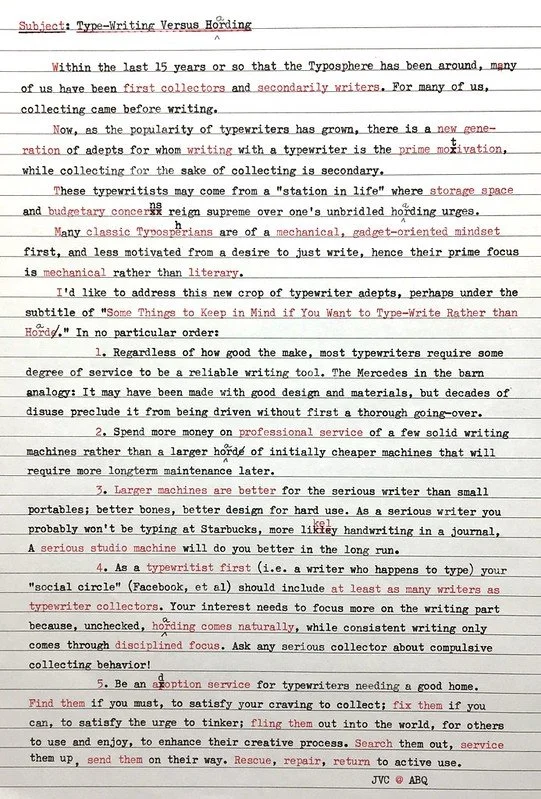 Subject: Type-Writing Versus Hoarding
Within the last 15 years or so that the Typosphere has been around, many
of us have been first collectors and secondarily writers. For many of us,
collecting came before writing.
Now, as the popularity of typewriters has grown, there is a new gene-
ration of adepts for whom writing with a typewriter is the prime motivation,
while collecting for the sake of collecting is secondary.
These typewritists may come from a "station in life" where storage space
and budgetary concerns reign supreme over one's unbridled hoarding urges.
Many classic Typospherians are of a mechanical, gadget-oriented mindset
first, and less motivated from a desire to just write, hence their prime focus
is mechanical rather than literary.
I'd like to address this new crop of typewriter adepts, perhaps under the
subtitle of "Some Things to Keep in Mind if You Want to Type-Write Rather than
Hoard." In no particular order:
1. Regardless of how good the make, most typewriters require some
degree of service to be a reliable writing tool. The Mercedes in the barn
analogy: It may have been made with good design and materials, but decades of
disuse preclude it from being driven without first a thorough going-over.
2. Spend more money on professional service of a few solid writing
machines rather than a larger hoard of initially cheaper machines that will
require more longterm maintenance later.
3. Larger machines are better for the serious writer than small
portables; better bones, better design for hard use. As a serious writer you
probably won't be typing at Starbucks, more likely handwriting in a journal,
A serious studio machine will do you better in the long run.
4. As a typewritist first (i.e. a writer who happens to type) your
"social circle" (Facebook, et al) should include at least as many writers as
typewriter collectors. Your interest needs to focus more on the writing part
because, unchecked, hoarding comes naturally, while consistent writing only
comes through disciplined focus. Ask any serious collector about compulsive
collecting behavior!
5. Be an adoption service for typewriters needing a good home.
Find them if you must, to satisfy your craving to collect; fix them if you
can, to satisfy the urge to tinker; fling them out into the world, for others
to use and enjoy, to enhance their creative process. Search them out, service
them up, send them on their way. Rescue, repair, return to active use.
JVC @ ABQ